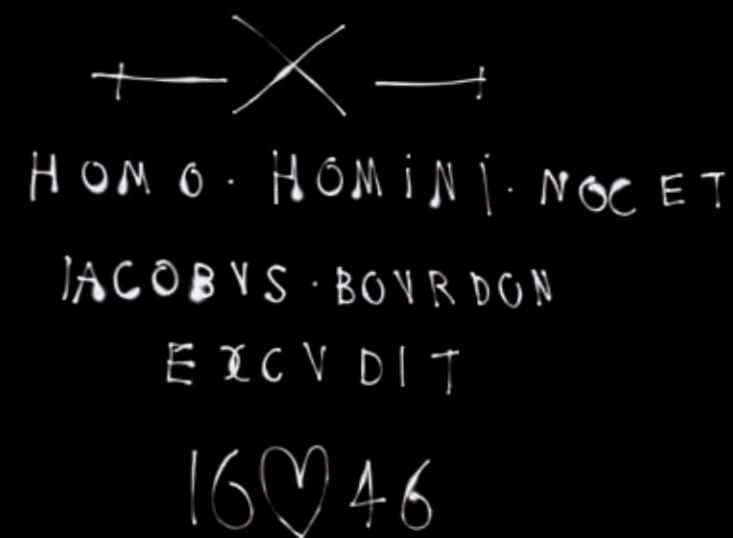 HOMO · HOMINI · NOCET
IACOBVS · BOVRDON
EXCVDIT
16♡46